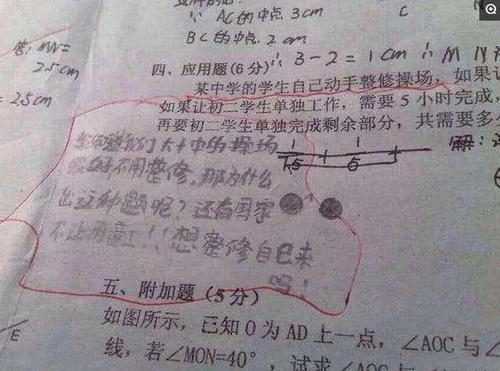 ∵ AC的中点 3cm
C
BC的中点 2cm
答: MN=
2.5cm
∵ 3-2=1cm ∴ M
= 2.5cm
四、应用题(6分)
某中学的学生自己动手整修操场，如果
如果让初二学生单独工作，需要5小时完成，
再要初二学生单独完成剩余部分，共需要多
解:
1 1
1.5 5
们大十中的操场
不用整修,那为什么
出这种题呢?还有国家
不让用童工!!想整修自已来
吗!
五、附加题（5分）
如图所示，已知O为AD上一点，∠AOC与∠
线，若∠MON=40°，试求∠AOC与
E